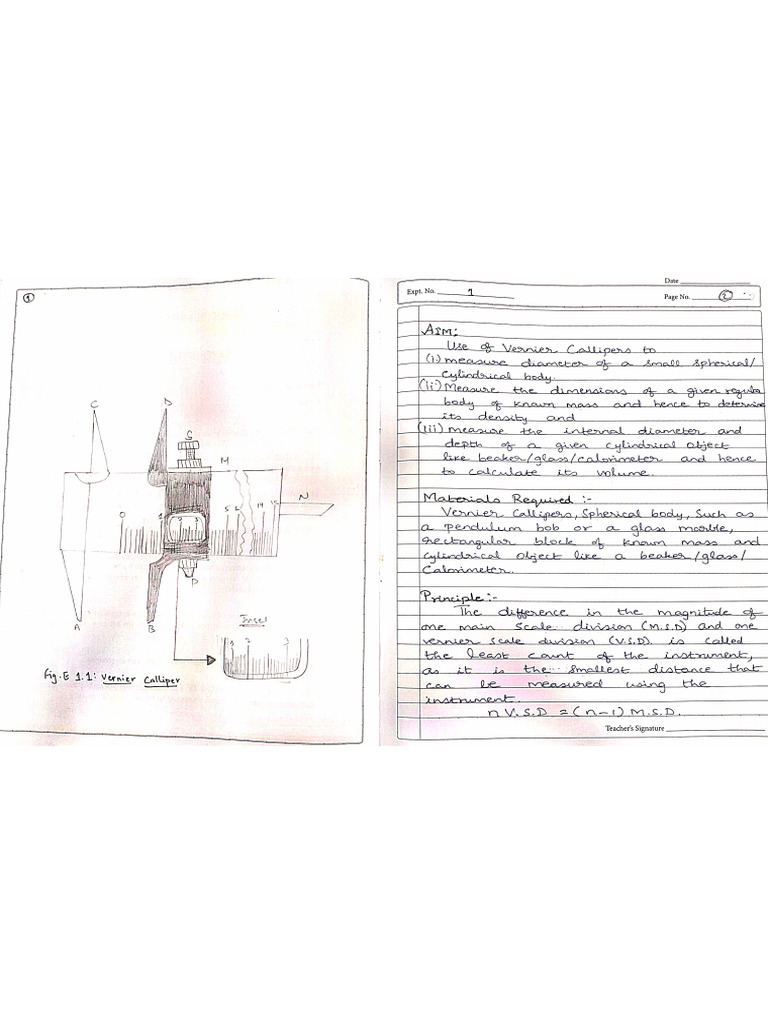 1
C
D
S
M
N
0
1
5
6
14
15
P
A
B
Insel
1 2 3
Fig. E 1.1: Vernier Calliper
Date
Expt. No. 1
Page No. 2
AIM:
Use of Vernier Callipers to
(i) measure diameter of a small spherical/
cylindrical body.
(ii) Measure the dimensions of a given regula
body of known mass and hence to determine
its density and
(iii) measure the internal diameter and
depth of a given cylindrical object
like beaker/glass/calorimeter and hence
to calculate its volume.
Materials Required :-
Vernier Callipers, Spherical body, Such as
a pendulum bob or a glass marble,
rectangular block of known mass and
cylindrical object like a beaker/glass/
Calorimeter.
Principle:-
The difference in the magnitude of
one main scale division (M.S.D) and one
vernier scale division (V.S.D). is called
the least count of the instrument,
as it is the smallest distance that
can be measured using the
instrument.
n V.S.D = (n-1) M.S.D.
Teacher's Signature